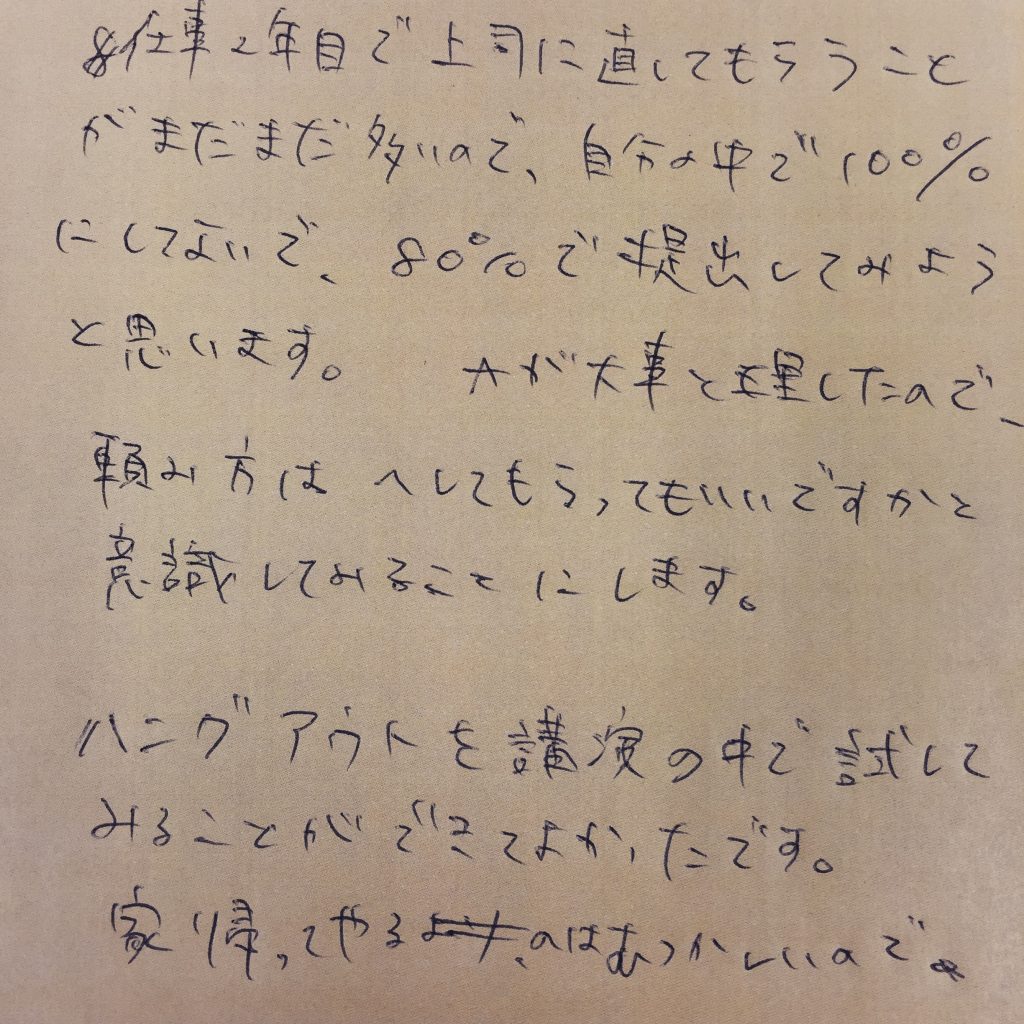 仕事2年目で上司に直してもらうこと
がまだまだ多いので、自分の中で100%
にしてないで、80%で提出してみよう
と思います。 Aが大事と理したので、
頼み方は へしてもらってもいいですかと
意識してみることにします。
ハングアウトを講演の中で試して
みることができてよかったです。
家帰ってやるのはむつかしいので。